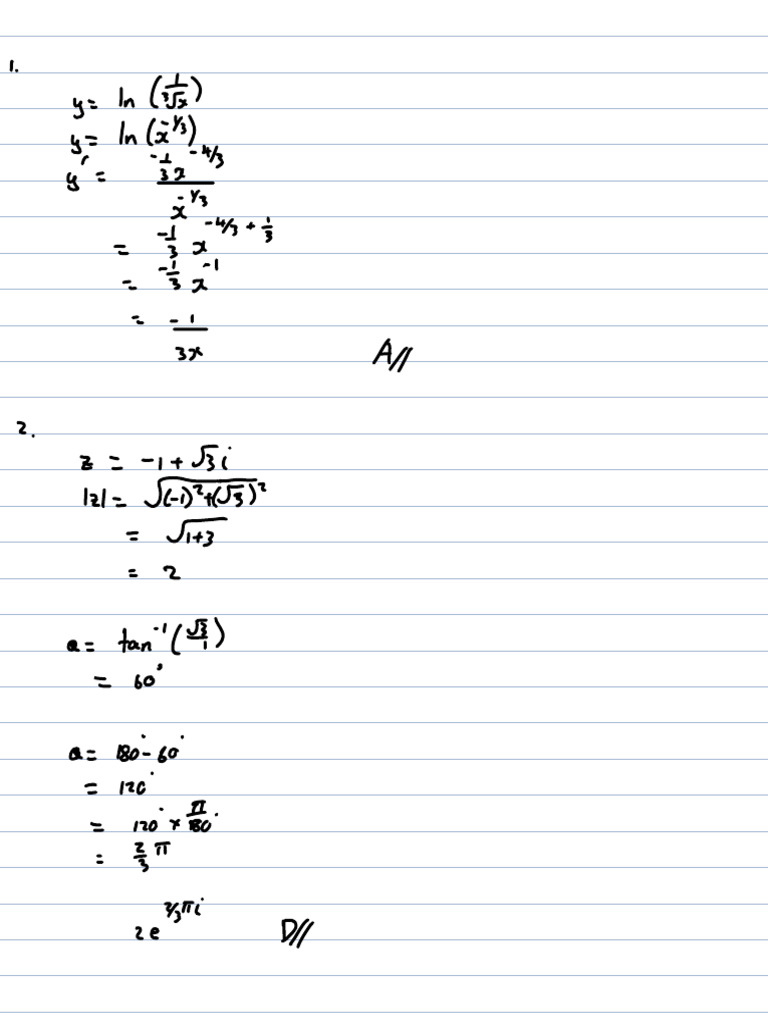 1.
y = ln (1/∛x)
y = ln (x^(-1/3))
y' = (-1/3 x^(-4/3)) / (x^(-1/3))
= -1/3 x^(-4/3 + 1/3)
= -1/3 x^(-1)
= -1 / 3x A//
2.
z = -1 + √3 i
|z| = √((-1)² + (√3)²)
= √(1+3)
= 2
a = tan⁻¹ (√3/1)
= 60°
a = 180° - 60°
= 120°
= 120° × π/180°
= 2/3 π
2e^(2/3πi) D//